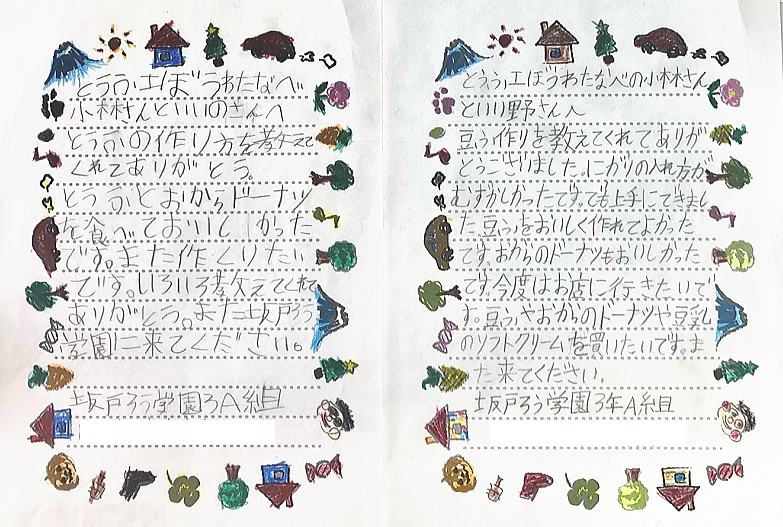 とうふ工ぼうわたなべ
小林さんといいのさんへ
とうふの作り方を教えて
くれてありがとう。
とうふとおからドーナツ
を食べておいしかった
です。また作くりたい
です。いろいろ教えてくれて
ありがとう。また坂戸ろう
学園に来てください。
坂戸ろう学園3A組
とうふ工ぼうわたなべの小林さん
といい野さんへ
豆ふ作りを教えてくれてありが
とうございました。にがりの入れ方が
むずかしかったです。でも上手にできまし
た豆ふをおいしく作れてよかった
です。おからのドーナツもおいしかった
です。今度はお店に行きたいで
す。豆ふやおからのドーナツや豆乳
のソフトクリームを買いたいです。ま
た来てください。
坂戸ろう学園3年A組